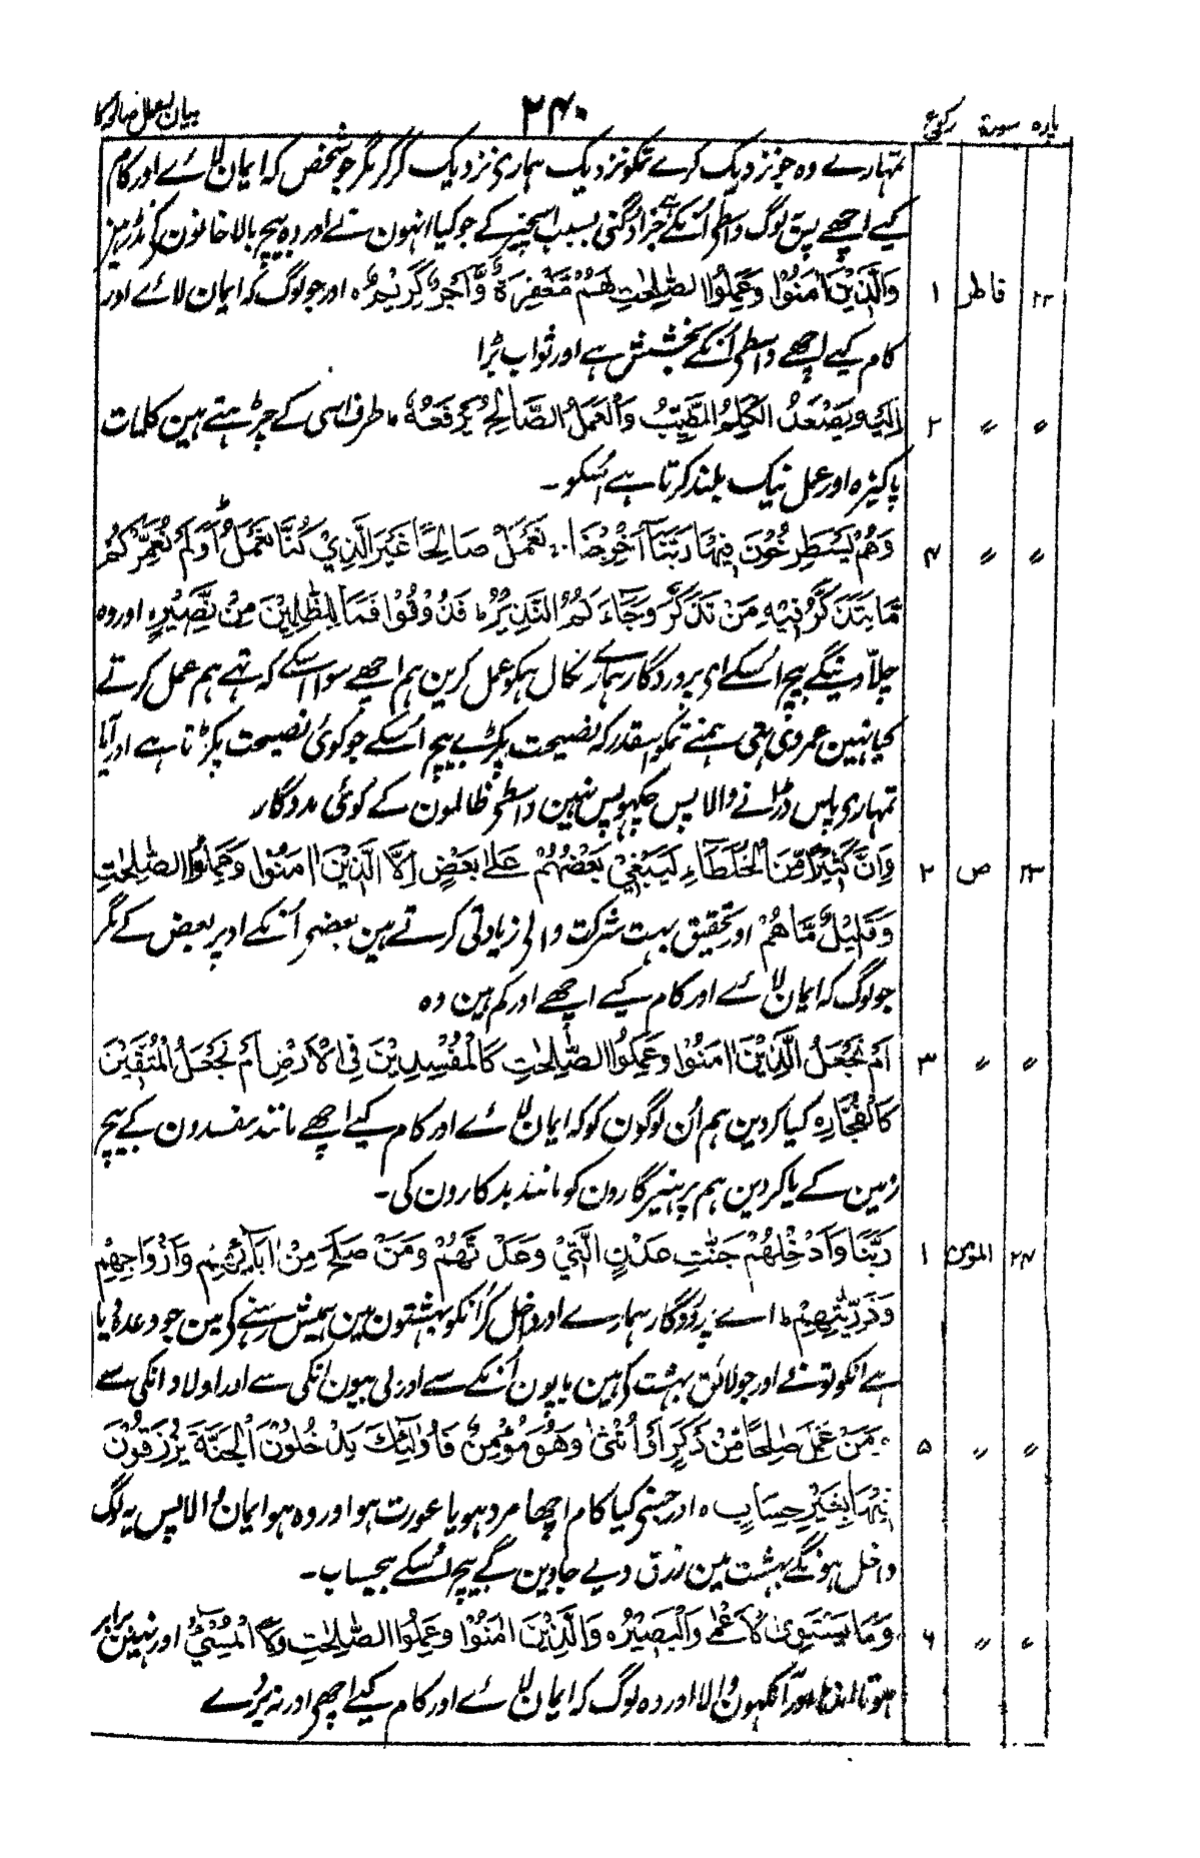 پارہ سورۃ رکوع ۲۴۰ بیان العمل صالح کا
تمہارے وہ جو نزدیک کرے تمکو نزدیک ہماری نزدیک کرکر مگر جو شخص کہ ایمان لائے اور کام
کیے اچھے پس یہ لوگ واسطے اُنکے ہے جزا دگنی بسبب اسچیز کے جو کیا انہون نے اور وہ بیچ بالاخانون کے نڈر ہیں
۲۲ فاطر ۱ وَالَّذِيْنَ اٰمَنُوْا وَعَمِلُوا الصّٰلِحٰتِ لَهُمْ مَّغْفِرَةٌ وَّاَجْرٌ كَبِيْرٌ ہ اور جو لوگ کہ ایمان لائے اور
کام کیے اچھے واسطے اُنکے بخشش ہے اور ثواب بڑا
〃 〃 ۲ اِلَيْهِ يَصْعَدُ الْكَلِمُ الطَّيِّبُ وَالْعَمَلُ الصَّالِحُ يَرْفَعُهٗ ؕ طرف اسی کے چڑہتے ہین کلمات
پاکیزہ اور عمل نیک بلند کرتا ہے اُسکو ۔
〃 〃 ۴ وَهُمْ يَصْطَرِخُوْنَ فِيْهَا رَبَّنَا اَخْرِجْنَا نَعْمَلْ صَالِحًا غَيْرَ الَّذِيْ كُنَّا نَعْمَلُ ؕ اَوَلَمْ نُعَمِّرْكُمْ
مَّا يَتَذَكَّرُ فِيْهِ مَنْ تَذَكَّرَ وَجَآءَكُمُ النَّذِيْرُ ؕ فَذُوْقُوْا فَمَا لِلظّٰلِمِيْنَ مِنْ نَّصِيْرٍ ہ اور وہ
چلاّدینگے بیچ اُسکے ای پروردگار ہمارے نکال ہمکو عمل کرین ہم اچھے سوا اسکے کہ تھے ہم عمل کرتے
کیا نہین عمر دی تھی ہمنے تمکو اسقدر کہ نصیحت پکڑے بیچ اُسکے جو کوئی نصیحت پکڑتا ہے اور آیا
تمہاری پاس ڈرانے والا پس چکہو پس نہین واسطے ظالمون کے کوئی مددگار
۲۳ ص ۲ وَاِنَّ كَثِيْرًا مِّنَ الْخُلَطَآءِ لَيَبْغِيْ بَعْضُهُمْ عَلٰى بَعْضٍ اِلَّا الَّذِيْنَ اٰمَنُوْا وَعَمِلُوا الصّٰلِحٰتِ
وَقَلِيْلٌ مَّا هُمْ اور تحقیق بہت شرکت والی زیادتی کرتے ہین بعضے اُنکے اوپر بعض کے مگر
جو لوگ کہ ایمان لائے اور کام کیے اچھے اور کم ہین وہ
〃 〃 ۳ اَمْ نَجْعَلُ الَّذِيْنَ اٰمَنُوْا وَعَمِلُوا الصّٰلِحٰتِ كَالْمُفْسِدِيْنَ فِى الْاَرْضِ اَمْ نَجْعَلُ الْمُتَّقِيْنَ
كَالْفُجَّارِ ہ کیا کردین ہم اُن لوگون کو کہ ایمان لائے اور کام کیے اچھے مانند مفسدون کے بیچ
زمین کے یا کردین ہم پرہیزگارون کو مانند بدکارون کی ۔
۲۴ المؤمن ۱ رَبَّنَا وَاَدْخِلْهُمْ جَنّٰتِ عَدْنٍ الَّتِيْ وَعَدْتَّهُمْ وَمَنْ صَلَحَ مِنْ اٰبَآئِهِمْ وَاَزْوَاجِهِمْ
وَذُرِّيّٰتِهِمْ ؕ اے پروردگار ہمارے اور داخل کر اُنکو بہشتون مین ہمیش رہنے کی مین جو وعدہ دیا
ہے انکو تونے اور جو لائق بہشت کی ہین باپون اُنکے سے اور بی بیون اُنکی سے اور اولاد انکی سے
〃 〃 ۵ وَمَنْ عَمِلَ صَالِحًا مِّنْ ذَكَرٍ اَوْ اُنْثٰى وَهُوَ مُؤْمِنٌ فَاُولٰٓئِكَ يَدْخُلُوْنَ الْجَنَّةَ يُرْزَقُوْنَ
فِيْهَا بِغَيْرِ حِسَابٍ ہ اور جسنے کیا کام اچھا مرد ہو یا عورت ہو اور وہ ہو ایمان والا پس یہ لوگ
داخل ہونگے بہشت مین رزق دیے جاوین گے بیچ اُسکے بیحساب ۔
〃 〃 ۶ وَمَا يَسْتَوِى الْاَعْمٰى وَالْبَصِيْرُ ہ وَالَّذِيْنَ اٰمَنُوْا وَعَمِلُوا الصّٰلِحٰتِ وَلَا الْمُسِيْٓءُ ؕ اور نہین برابر
ہوتا اندھا اور آنکہون والا اور وہ لوگ کہ ایمان لائے اور کام کیے اچھے اور نہ بُرے